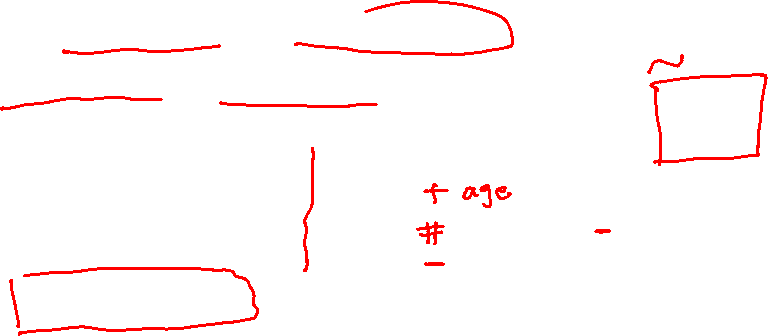 ~
+ age
# -
-